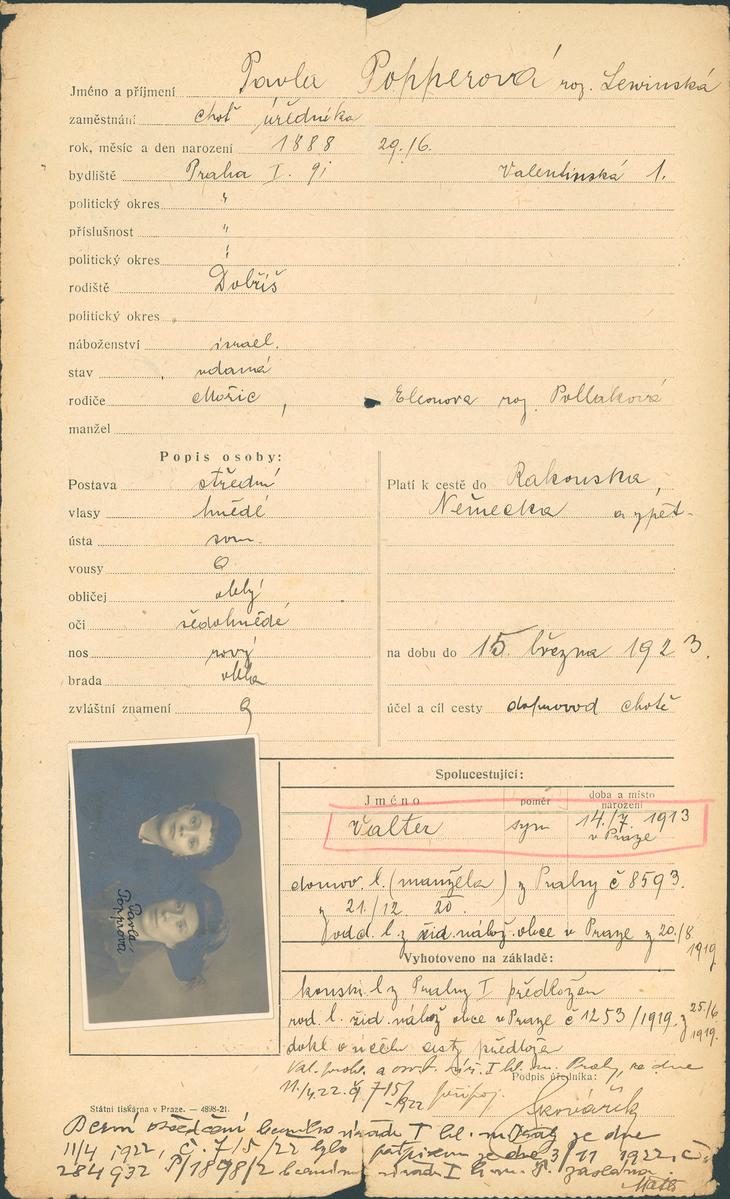 Jméno a příjmení Pavla Popperová roz. Lewinská
zaměstnání choť úředníka
rok, měsíc a den narození 1888 29./6.
bydliště Praha I. 91 Valentinská 1.
politický okres "
příslušnost "
politický okres "
rodiště Dobříš
politický okres
náboženství israel.
stav vdaná
rodiče Mořic, Eleonora roz. Pollaková
manžel
Popis osoby:
Postava střední
vlasy hnědé
ústa soum.
vousy 0
obličej oblý
oči šedohnědé
nos rovný
brada oblá
zvláštní znamení 0
Platí k cestě do Rakouska,
Německa a zpět
na dobu do 15. března 1923.
účel a cíl cesty doprovod chotě
Pavla
Popprová
Spolucestující:
Jméno poměr doba a místo narození
Valter syn 14./7. 1913
v Praze
domov. l. (manžela) z Prahy č 8593.
z 21./12. 20.
l. z žid. nábož. obce v Praze z 20./8
1919
Vyhotoveno na základě:
l z Prahy I předložen
rod. l. žid. nábož obce v Praze č 1253/1919. z 25/6
1919.
dokl o účelu cesty předlože
a I hl. m. Prahy, ze dne
11./4.22. č 715/
-1922
Podpis úředníka:
Škovářík
Státní tiskárna v Praze. — 4898-21.
osvědčení berního úřadu I hl. m. Prahy ze dne
11/4 1922, č. 715/22 bylo ze dne 3/11 1922, č.
284932 1898/2 bernímu úřadu I hl. m. P. zasláno.